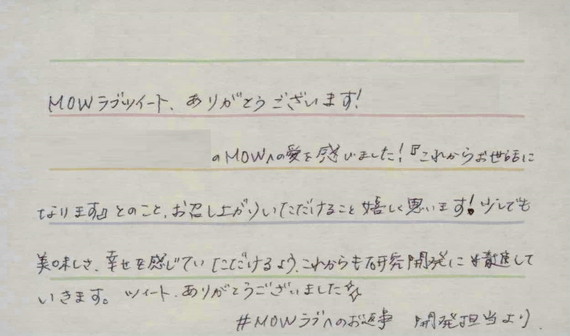 MOWラブツイート、ありがとうございます!
のMOWへの愛を感じました!『これからお世話に
なります』とのこと、お召し上がりいただけること嬉しく思います!少しでも
美味しさ、幸せを感じていただけるよう、これからも研究開発に精進して
いきます。ツイート、ありがとうございました
#MOWラブへのお返事 開発担当より